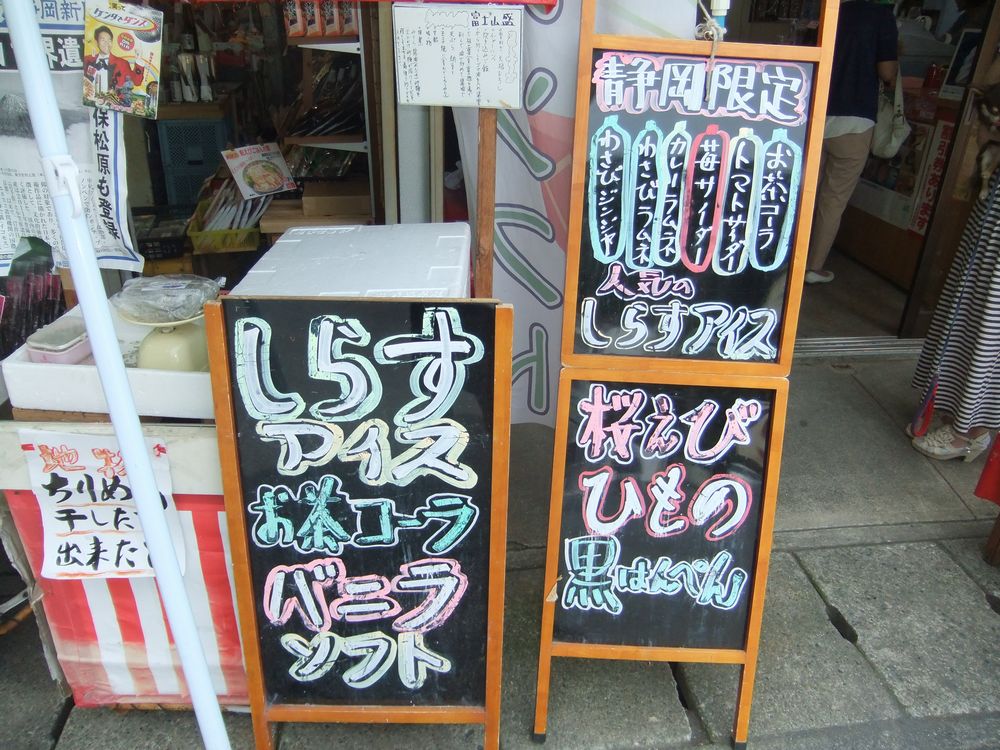 静岡限定
お茶コーラ
トマトサイダー
苺サイダー
カレーラムネ
わさびラムネ
わさびジンジャー
人気の
しらすアイス
桜えび
ひもの
黒はんぺん
しらす
アイス
お茶コーラ
バニラ
ソフト
富士山盛
保松原も登録
ちりめ
干した
出来た